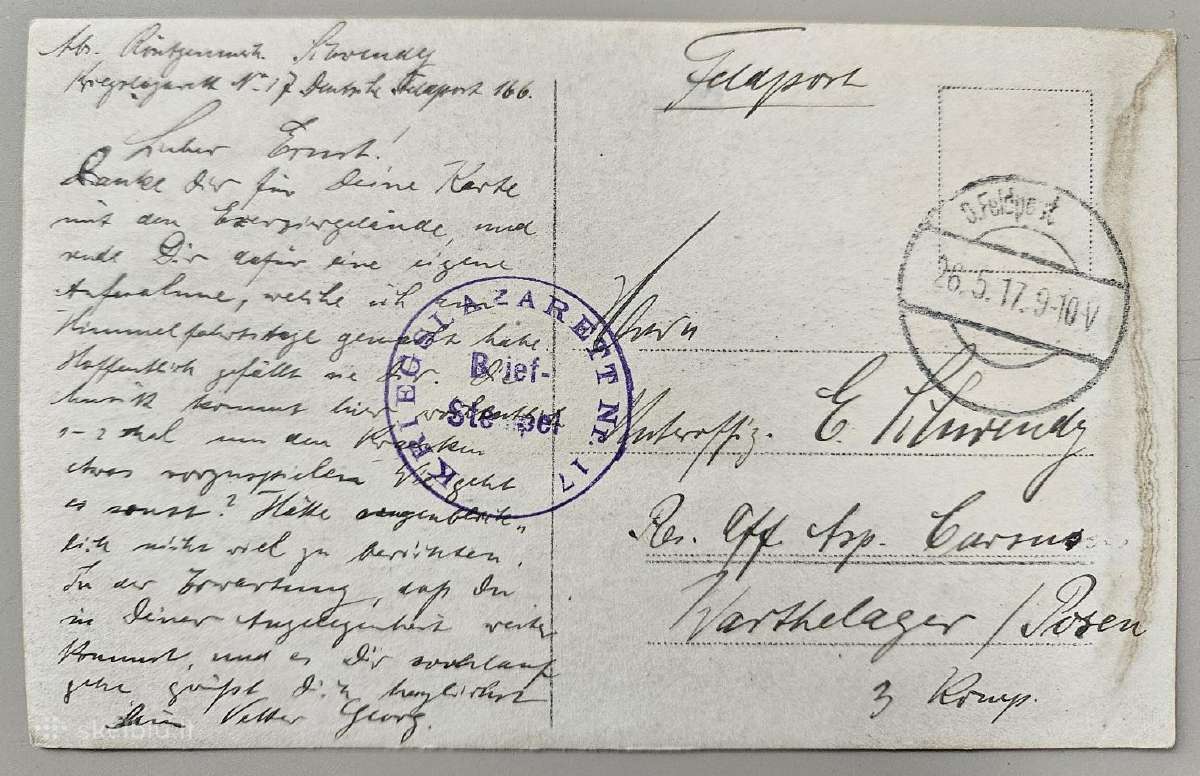 Abs. Röntgenmech. Schwendy
Kriegslazarett No 17 Deutsche Feldpost 166.
Lieber Ernst!
Danke Dir für Deine Karte
mit dem Exerziergelände, und
sende Dir dafür eine eigene
Aufnahme, welche ich am
Himmelfahrtstage gemacht habe.
Hoffentlich gefällt sie Dir. Die
Musik kommt hier wöchentlich
1-2 Mal um den Kranken
etwas vorzuspielen. Wie geht
es sonst? Hätte augenblick„
lich nicht viel zu berichten,
In der Erwartung, daß Du
in Deiner Angelegenheit weiter
kommst, und es Dir wohlauf
gehe grüßt Dich herzlichst
Dein Vetter Georg.
Feldpost
D. Feldpost
26.5.17. 9-10 V
KRIEGSLAZARETT Nr. 17
Brief-
Stempel
Herrn
Unteroffiz. E. Schwendy
Res. Off. Asp. Cursus
Warthelager / Posen
3 Komp.
skelbiu.lt